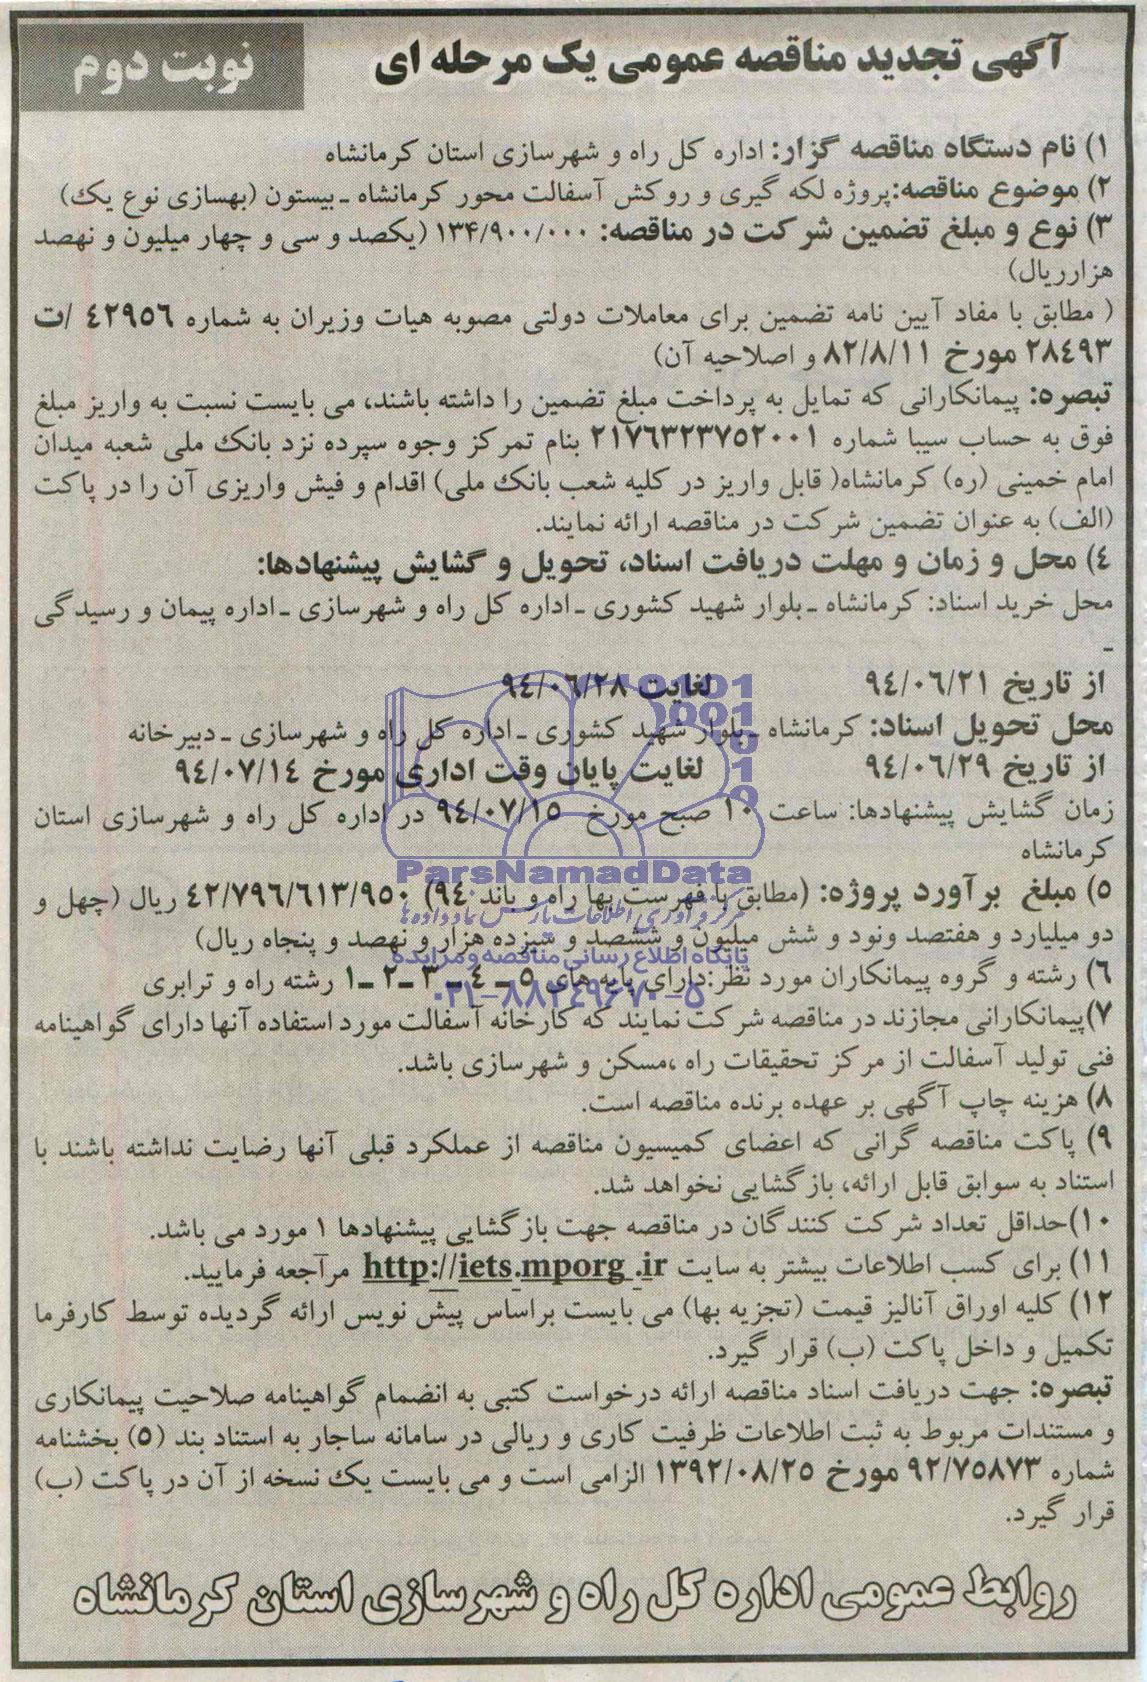 آگهی تجدید مناقصه عمومی یک مرحله ای
نوبت دوم
۱) نام دستگاه مناقصه گزار: اداره کل راه و شهرسازی استان کرمانشاه
۲) موضوع مناقصه:پروژه لکه گیری و روکش آسفالت محور کرمانشاه ـ بیستون (بهسازی نوع یک)
۳) نوع و مبلغ تضمین شرکت در مناقصه: ۱۳۴/۹۰۰/۰۰۰ (یکصد و سی و چهار میلیون و نهصد
هزارریال)
( مطابق با مفاد آیین نامه تضمین برای معاملات دولتی مصوبه هیات وزیران به شماره ۴۲۹۵۶ /ت
۲۸۴۹۳ مورخ ۸۲/۸/۱۱ و اصلاحیه آن)
تبصره: پیمانکارانی که تمایل به پرداخت مبلغ تضمین را داشته باشند، می بایست نسبت به واریز مبلغ
فوق به حساب سیبا شماره ۲۱۷۶۳۲۳۷۵۲۰۰۱ بنام تمرکز وجوه سپرده نزد بانک ملی شعبه میدان
امام خمینی (ره) کرمانشاه( قابل واریز در کلیه شعب بانک ملی) اقدام و فیش واریزی آن را در پاکت
(الف) به عنوان تضمین شرکت در مناقصه ارائه نمایند.
۴) محل و زمان و مهلت دریافت اسناد، تحویل و گشایش پیشنهادها:
محل خرید اسناد: کرمانشاه ـ بلوار شهید کشوری ـ اداره کل راه و شهرسازی ـ اداره پیمان و رسیدگی
ـ
از تاریخ ۹۴/۰۶/۲۱ لغایت ۹۴/۰۶/۲۸
محل تحویل اسناد: کرمانشاه ـ بلوار شهید کشوری ـ اداره کل راه و شهرسازی ـ دبیرخانه
از تاریخ ۹۴/۰۶/۲۹ لغایت پایان وقت اداری مورخ ۹۴/۰۷/۱۴
زمان گشایش پیشنهادها: ساعت ۱۰ صبح مورخ ۹۴/۰۷/۱۵ در اداره کل راه و شهرسازی استان
کرمانشاه
ParsNamadData
۵) مبلغ برآورد پروژه: (مطابق با فهرست بها راه و باند ۹۴) ۴۲/۷۹۶/۶۱۳/۹۵۰ ریال (چهل و
مرکز فرآوری اطلاعات پارس نماد داده ها
دو میلیارد و هفتصد ونود و شش میلیون و ششصد و سیزده هزار و نهصد و پنجاه ریال)
پایگاه اطلاع رسانی مناقصه و مزایده
۶) رشته و گروه پیمانکاران مورد نظر:دارای پایه های ۵ ـ ۴ ـ ۳ ـ ۲ ـ ۱ رشته راه و ترابری
۰۲۱-۸۸۳۴۹۶۷۰-۵
۷)پیمانکارانی مجازند در مناقصه شرکت نمایند که کارخانه آسفالت مورد استفاده آنها دارای گواهینامه
فنی تولید آسفالت از مرکز تحقیقات راه ،مسکن و شهرسازی باشد.
۸) هزینه چاپ آگهی بر عهده برنده مناقصه است.
۹) پاکت مناقصه گرانی که اعضای کمیسیون مناقصه از عملکرد قبلی آنها رضایت نداشته باشند با
استناد به سوابق قابل ارائه، بازگشایی نخواهد شد.
۱۰)حداقل تعداد شرکت کنندگان در مناقصه جهت بازگشایی پیشنهادها ۱ مورد می باشد.
۱۱) برای کسب اطلاعات بیشتر به سایت http://iets.mporg.ir مراجعه فرمایید.
۱۲) کلیه اوراق آنالیز قیمت (تجزیه بها) می بایست براساس پیش نویس ارائه گردیده توسط کارفرما
تکمیل و داخل پاکت (ب) قرار گیرد.
تبصره: جهت دریافت اسناد مناقصه ارائه درخواست کتبی به انضمام گواهینامه صلاحیت پیمانکاری
و مستندات مربوط به ثبت اطلاعات ظرفیت کاری و ریالی در سامانه ساجار به استناد بند (۵) بخشنامه
شماره ۹۲/۷۵۸۷۳ مورخ ۱۳۹۲/۰۸/۲۵ الزامی است و می بایست یک نسخه از آن در پاکت (ب)
قرار گیرد.
روابط عمومی اداره کل راه و شهرسازی استان کرمانشاه